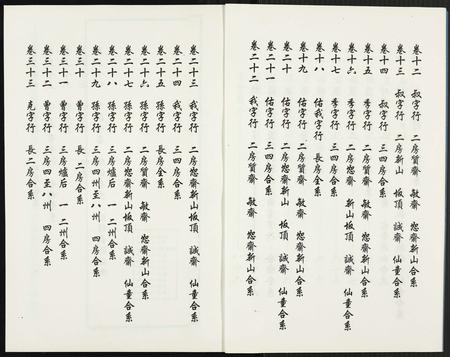 卷十二 叔字行 二房質齋 敏齋 恕齋新山合系
卷十三 叔字行 二房新山 坂頂 誠齋 仙重合系
卷十四 叔字行 三四房合系
卷十五 季字行 二房質齋 敏齋 恕齋新山合系
卷十六 季字行 二房恕齋新山坂頂 誠齋 仙重合系
卷十七 季字行 三四房合系
卷十八 佑我字行 長房全系
卷十九 佑字行 二房質齋 敏齋 恕齋新山合系
卷二十 佑字行 二房恕齋新山 坂頂 誠齋 仙重合系
卷二十一 佑字行 三四房合系
卷二十二 我字行 二房質齋 敏齋 恕齋新山合系
卷二十三 我字行 二房恕齋新山坂頂 誠齋 仙重合系
卷二十四 我字行 三四房合系
卷二十五 孫字行 長房全系
卷二十六 孫字行 二房質齋 敏齋 恕齋新山合系
卷二十七 孫字行 二房恕齋新山坂頂 誠齋 仙重合系
卷二十八 孫字行 三房爐后 一 二州合系
卷二十九 孫字行 三房四州至八州 四房合系
卷三十 曹字行 長 二房合系
卷三十一 曹字行 三房爐后 一 二州合系
卷三十二 曹字行 三房四至八州 四房合系
卷三十三 克字行 長二房合系